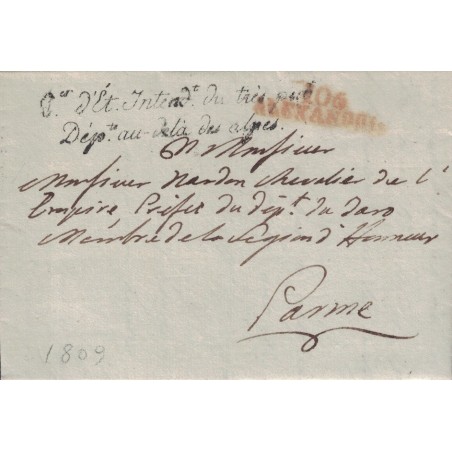 C.er d'Ét. Intend.t du trés. pub.
Dép.ts au-delà des alpes.
106
ALEXANDRIE
A Monsieur
Monsieur Nardon Chevalier de l'
Empire Préfet du dép.t du Taro
Membre de la Légion d'Honneur
Parme
1809